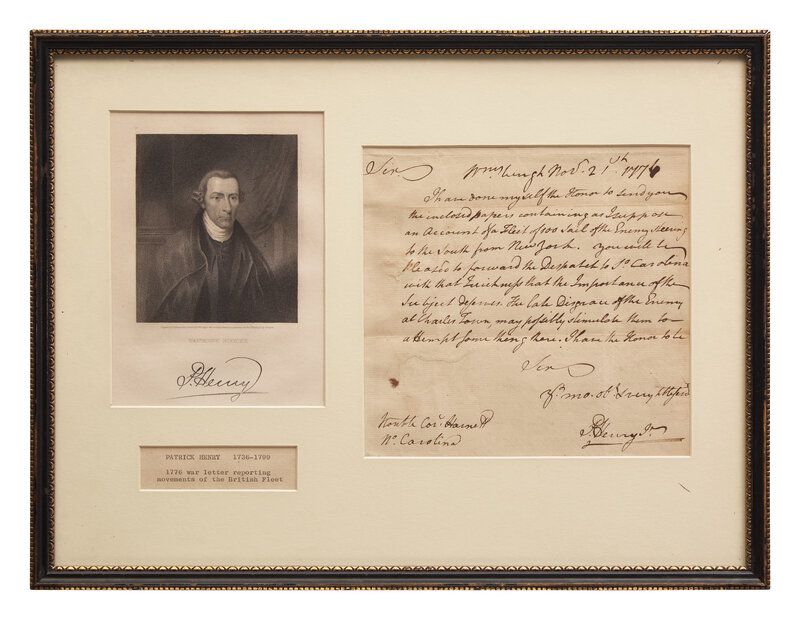 PATRICK HENRY
P. Henry
PATRICK HENRY 1736-1799
1776 war letter reporting
movements of the British Fleet
Sir. Wmsburgh Novr. 21st. 1776
I have done myself the Honor to send you
the inclosed papers containing as I suppose
an Account of a Fleet of 100 Sail of the Enemy steering
to the South from New York. You will be
pleased to forward the Despatch to So. Carolina
with that Quickness that the Importance of the
Subject deserves. The late Disgrace of the Enemy
at Charles Town, may possibly stimulate them to
attempt some thing here. I have the Honor to be
Sir
Yr. mo. obt. Servt
P. Henry Jr.
Honble Cors. Harnett
No. Carolina